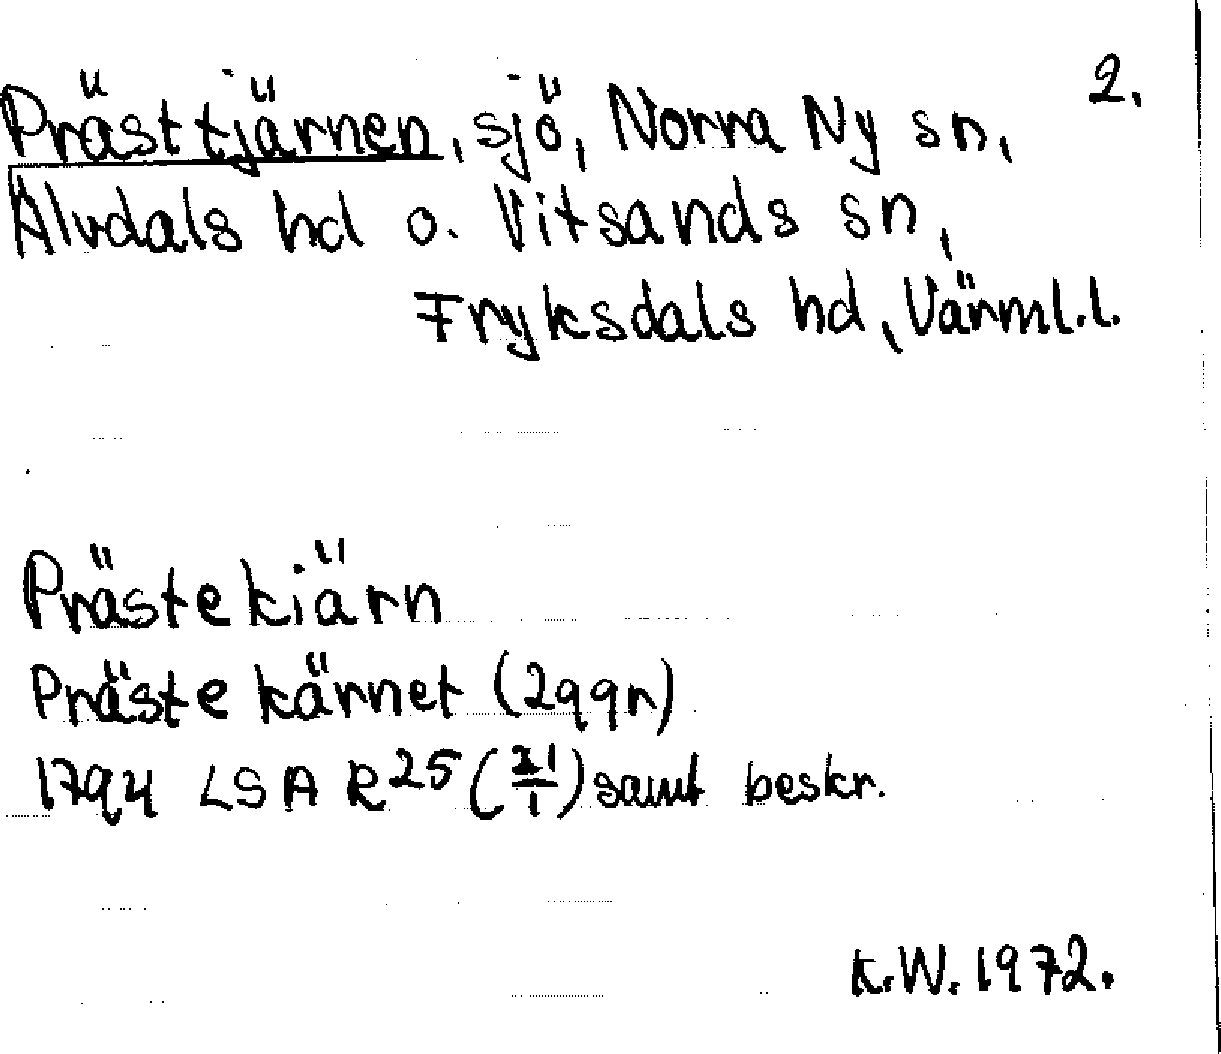 2.
Prästtjärnen, sjö, Norra Ny sn,
Älvdals hd o. Vitsands sn,
Fryksdals hd, Värml.l.
Prästekiärn
Prästekärnet (2ggr)
1794 LSA R25 (21/1) samt beskr.
K.W. 1972.